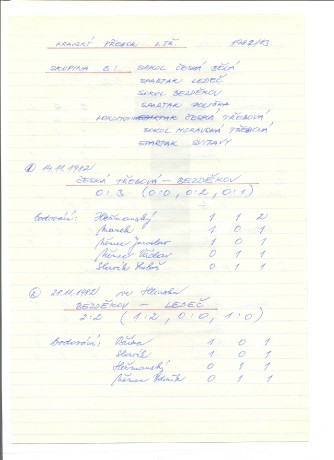 KRAJSKÝ PŘEBOR II.TŘ. 1982/83
SKUPINA B: SOKOL ČESKÁ BĚLÁ
SPARTAK LEDEČ
SOKOL BEZDĚKOV
SPARTAK POLIČKA
LOKOMOTIVA ČESKÁ TŘEBOVÁ
SOKOL MORAVSKÁ TŘEBOVÁ
SPARTAK SVITAVY
14.11.1982
ČESKÁ TŘEBOVÁ – BEZDĚKOV
0:3 (0:0, 0:2, 0:1)
bodování: Heřmanský 1 1 2
Marek 1 0 1
Němec Jaroslav 1 0 1
Němec Václav 0 1 1
Slavík Luboš 0 1 1
21.11.1982 Hlinsko
BEZDĚKOV – LEDEČ
2:2 (1:2, 0:0, 1:0)
bodování: 1 0 1
Slavík 1 0 1
Heřmanský 0 1 1
Němec Zdeněk 0 1 1